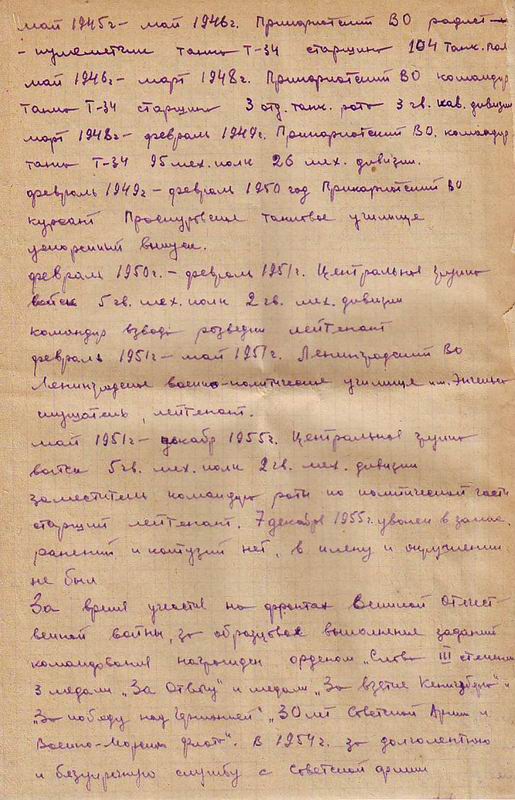 май 1945г - май 1946г. Прикарпатский ВО радист-
- пулеметчик танка Т-34 старшина 104 танк. пол
май 1946г - март 1948г. Прикарпатский ВО командир
танка Т-34 старшина 3 отд. танк. рота 3 гв. кав. дивизии
март 1948г - февраль 1949г. Прикарпатский ВО. командир
танка Т-34 95 мех. полк 26 мех. дивизии.
февраль 1949г - февраль 1950 год Прикарпатский ВО
курсант Проскуровское танковое училище
ускоренный выпуск.
февраль 1950г. - февраль 1951г. Центральная группа
войск 5 гв. мех. полк 2 гв. мех. дивизии
командир взвода разведки лейтенант
февраль 1951г - май 1951г. Ленинградский ВО
Ленинградское военно-политическое училище им. Энгельса
слушатель, лейтенант.
май 1951г - декабр 1955г. Центральная группа
войск 5 гв. мех. полк 2 гв. мех. дивизии
заместитель командира роты по политической части
старший лейтенант. 7 декабря 1955г. уволен в запас.
ранений и контузий нет, в плену и окружении
не был
За время участия на фронтах Великой Отечест-
венной войны, за образцовое выполнение заданий
командования награжден орденом „Слава III степени
3 медали „За Отвагу" и медали „За взятие Кенигберга" и
„За победу над Германией", „30 лет Советской Армии и
Военно-Морского флота". В 1954г. за долголетнюю
и безупречную службу в Советской армии